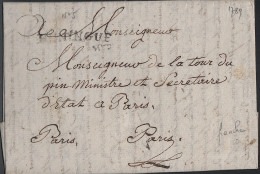 Monseigneur
Monseigneur de la tour du
pin Ministre et Secretaire
d'Etat a Paris.
Paris, Paris.